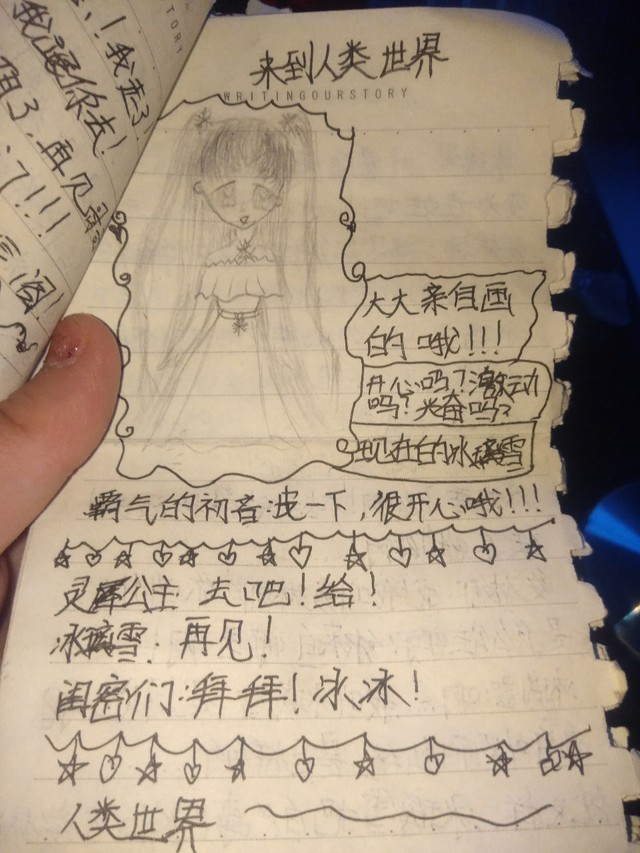 ！我走了！
我送你去！
了，再见
了！！！
来到人类世界
WRITINGOURSTORY
大大亲自画
的哦！！！
开心吗？激动
吗！兴奋吗？
现在的冰璃雪
霸气的初音波一下，很开心哦！！！
灵犀公主 去吧！给！
冰璃雪：再见！
闺密们：拜拜！冰冰！
人类世界